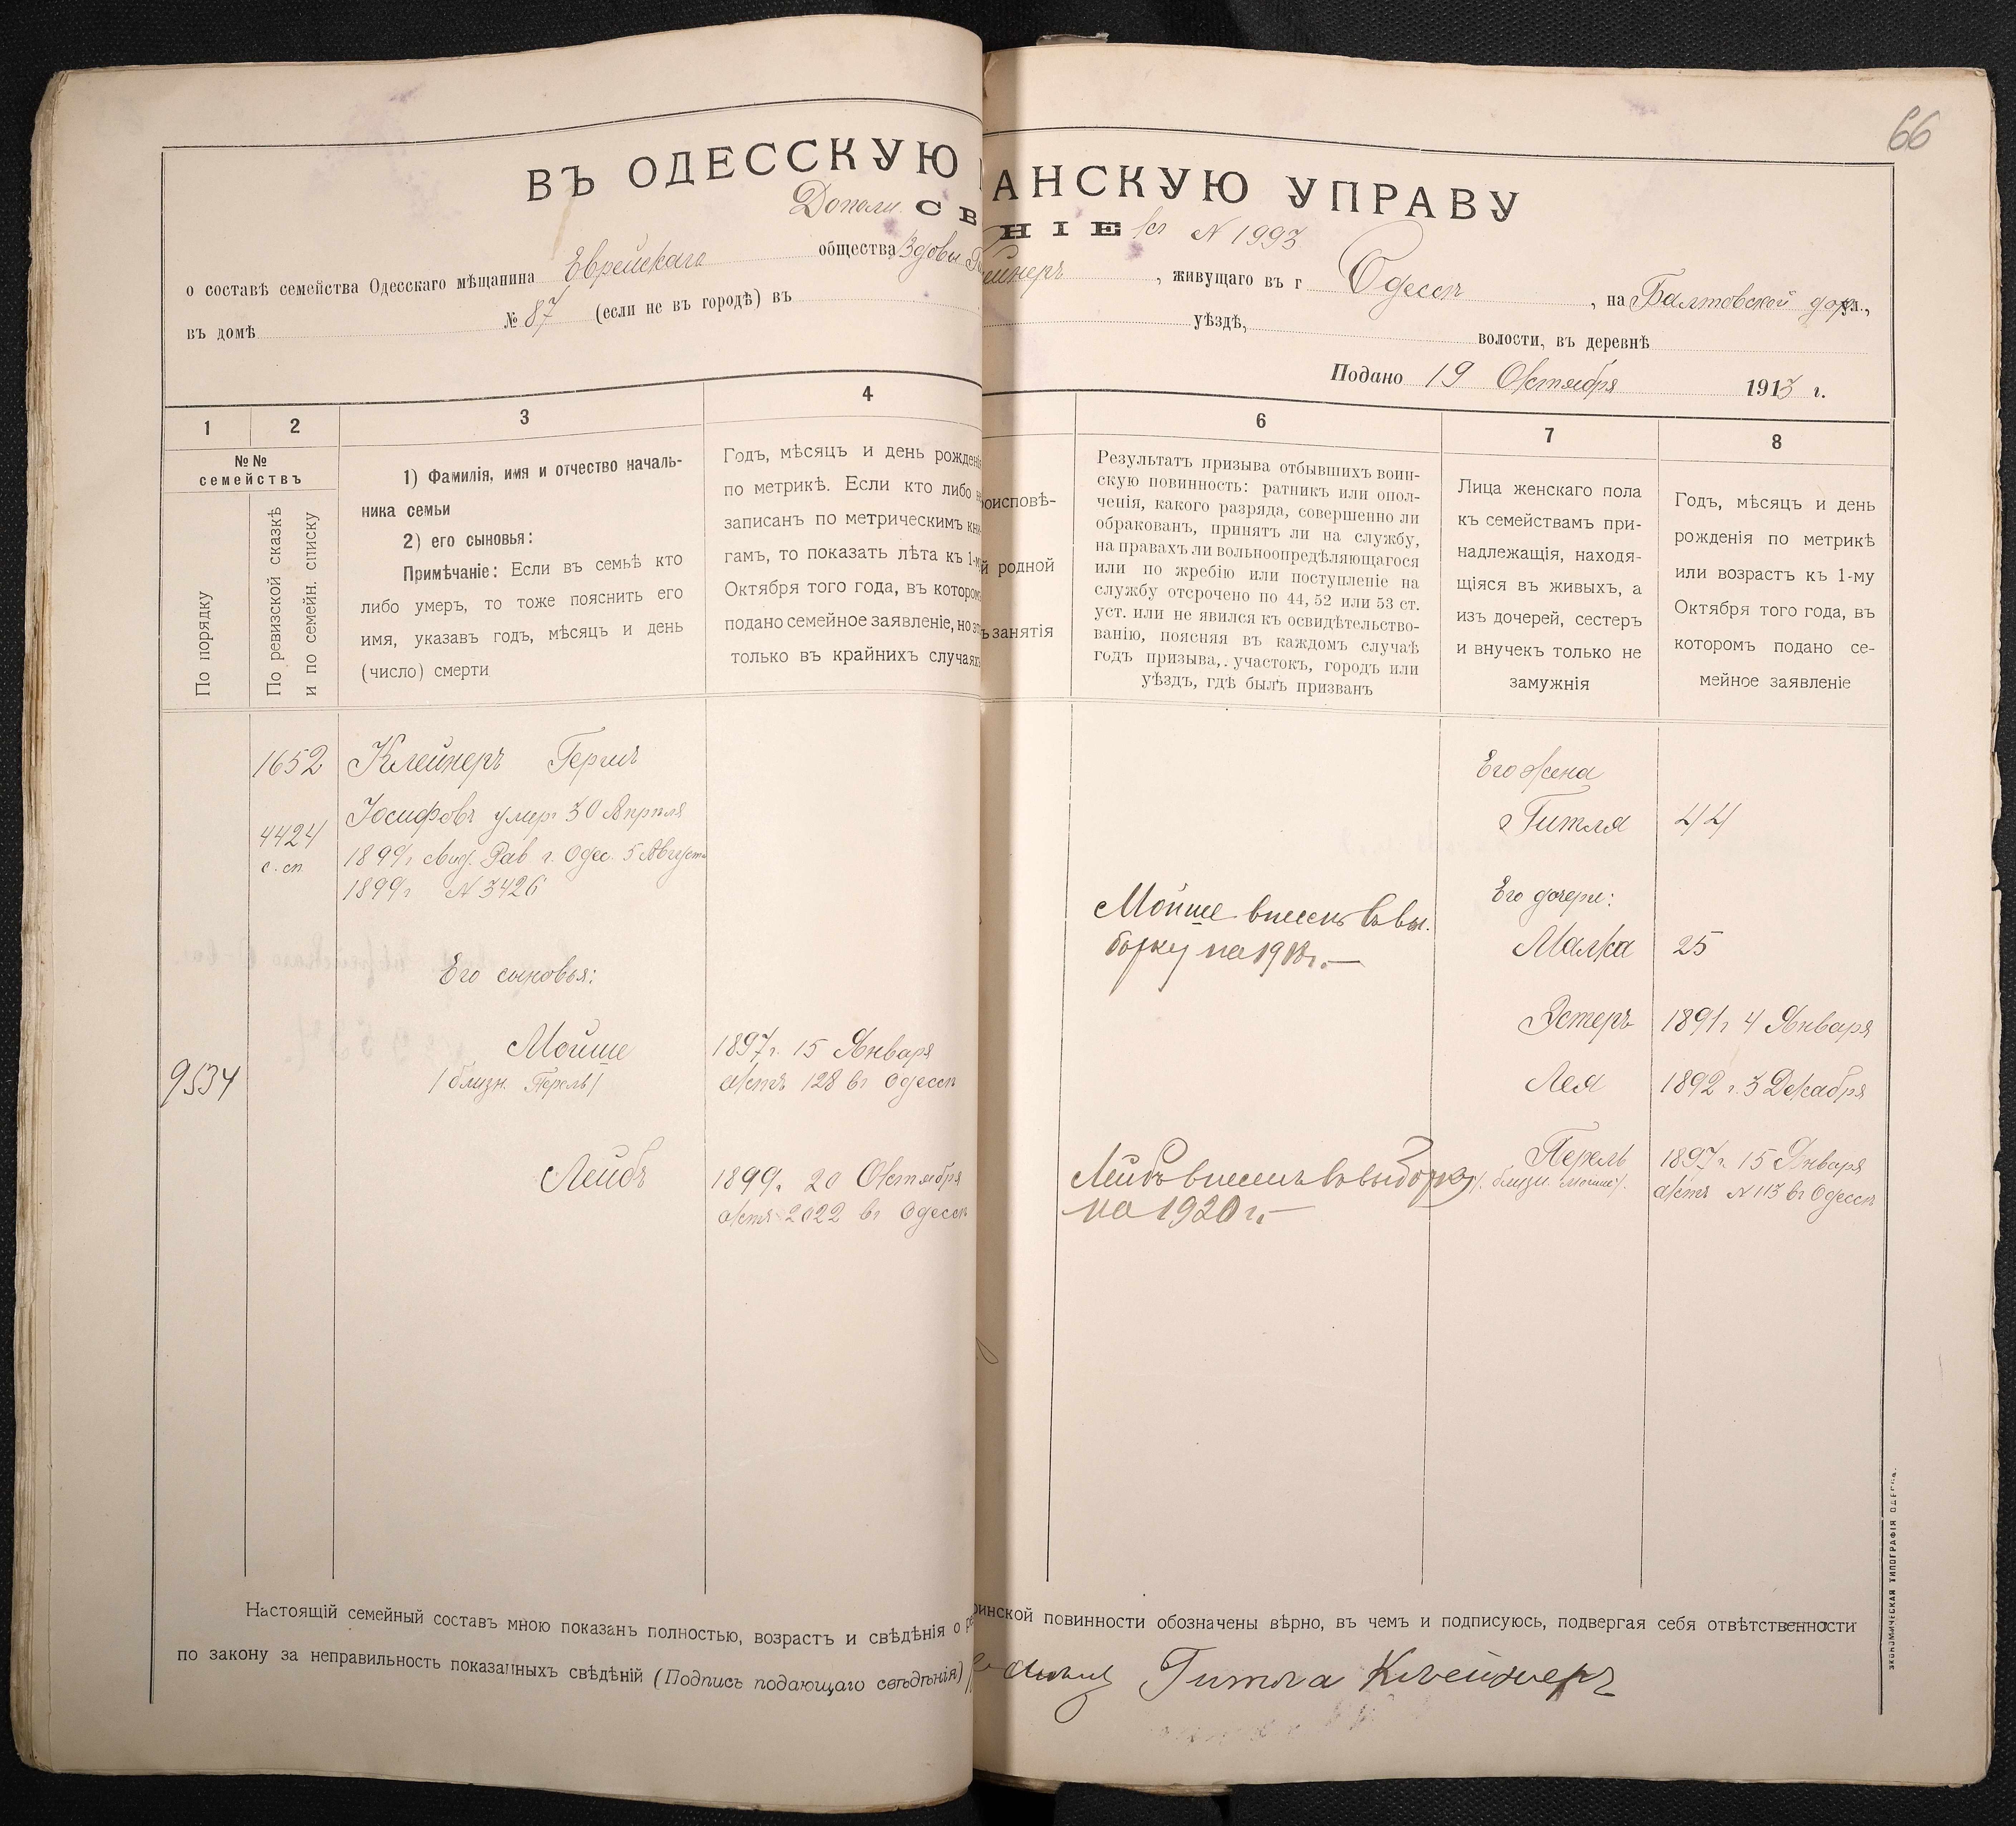 66
ВЪ ОДЕССКУЮ
АНСКУЮ УПРАВУ
Дополн. СВ
НІЕ къ № 1993
о составѣ семейства Одесскаго мѣщанина Еврейскаго общества Вдовы
ейнеръ, живущаго въ г Одессѣ, на Балтовской дор ул.,
въ домѣ № 87 (если не въ городѣ) въ
уѣздѣ, волости, въ деревнѣ
Подано 19 Октября 1913 г.
1
2
3
4
№№ семействъ
По порядку
По ревизской сказкѣ
и по семейн. списку
1) Фамилія, имя и отчество началь-
ника семьи
2) его сыновья:
Примѣчаніе: Если въ семьѣ кто
либо умеръ, то тоже пояснить его
имя, указавъ годъ, мѣсяцъ и день
(число) смерти
Годъ, мѣсяцъ и день рожденія
по метрикѣ. Если кто либо не
записанъ по метрическимъ кни-
гамъ, то показать лѣта къ 1-му
Октября того года, въ которомъ
подано семейное заявленіе, но это
только въ крайнихъ случаяхъ
оисповѣ-
й родной
ъ занятія
6
7
8
Результатъ призыва отбывшихъ воин-
скую повинность: ратникъ или опол-
ченія, какого разряда, совершенно ли
обракованъ, принятъ ли на службу,
на правахъ ли вольноопредѣляющагося
или по жребію или поступленіе на
службу отсрочено по 44, 52 или 53 ст.
уст. или не явился къ освидѣтельство-
ванію, поясняя въ каждомъ случаѣ
годъ призыва, участокъ, городъ или
уѣздъ, гдѣ былъ призванъ
Лица женскаго пола
къ семействамъ при-
надлежащія, находя-
щіяся въ живыхъ, а
изъ дочерей, сестеръ
и внучекъ только не
замужнія
Годъ, мѣсяцъ и день
рожденія по метрикѣ
или возрастъ къ 1-му
Октября того года, въ
которомъ подано се-
мейное заявленіе
1652
4424
с. сп
9534
Клейнеръ Гершъ
Іосифовъ умеръ 30 Апрѣля
1899 г. Рав. г. Одес. 5 Августа
1899 г. № 3426
Его сыновья:
Мойше
/близн. Перель/
1897 г. 15 Января
актъ 128 въ Одессѣ
Лейбъ
1899. 20 Октября
актъ 2022 въ Одессѣ
Мойше внесенъ въ вы-
борку на 1918 г.—
Лейбъ внесенъ въ выборку
на 1920 г.—
Его жена
Гитля 44
Его дочери:
Малка 25
Эстеръ 1891 г. 4 Января
Лея 1892 г. 3 Декабря
Перель 1897 г. 15 Января
/близн. Мойше/. актъ № 113 въ Одессѣ
Настоящій семейный составъ мною показанъ полностью, возрастъ и свѣдѣнія о
инской повинности обозначены вѣрно, въ чемъ и подписуюсь, подвергая себя отвѣтственности
по закону за неправильность показанныхъ свѣдѣній (Подпись подающаго свѣдѣнія)
Гитля Клейнеръ
ЭКОНОМИЧЕСКАЯ ТИПОГРАФІЯ ОДЕССА.